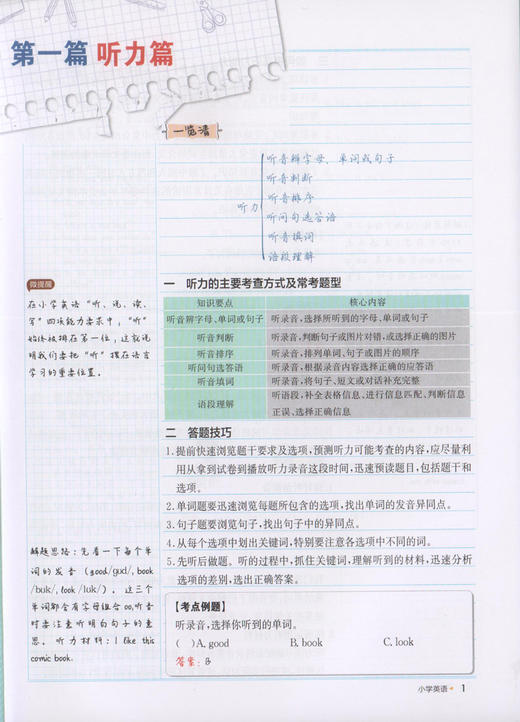 第一篇 听力篇
一览清
听力
听音辨字母、单词或句子
听音判断
听音排序
听问句选答语
听音填词
语段理解
微提醒
在小学英语“听、说、读、
写”四项能力要求中，“听”
始终被排在第一位，这就说
明我们要把“听”摆在语言
学习的重要位置。
一 听力的主要考查方式及常考题型
知识要点 核心内容
听音辨字母、单词或句子 听录音，选择所听到的字母、单词或句子
听音判断 听录音，判断句子或图片对错，或选择正确的图片
听音排序 听录音，排列单词、句子或图片的顺序
听问句选答语 听录音，根据录音内容选择正确的应答语
听音填词 听录音，将句子、短文或对话补充完整
语段理解 听语段，补全表格信息、进行信息匹配、判断信息
正误、选择正确信息
二 答题技巧
1.提前快速浏览题干要求及选项，预测听力可能考查的内容，应尽量利
用从拿到试卷到播放听力录音这段时间，迅速预读题目，包括题干和
选项。
2.单词题要迅速浏览每题所包含的选项，找出单词的发音异同点。
3.句子题要浏览句子，找出句子中的异同点。
4.从每个选项中划出关键词，特别要注意各选项中不同的词。
5.先听后做题。听的过程中，抓住关键词，理解听到的材料，迅速分析
选项的差别，选出正确答案。
解题思路：先看一下每个单
词的发音（good/gʊd/, book
/bʊk/, look /lʊk/），这三个
单词都含有字母组合 oo,听音
时要注意听明白句子的意
思。听力材料：I like this
comic book.
【考点例题】
听录音，选择你听到的单词。
（ ）A. good B. book C. look
答案：B
小学英语 1